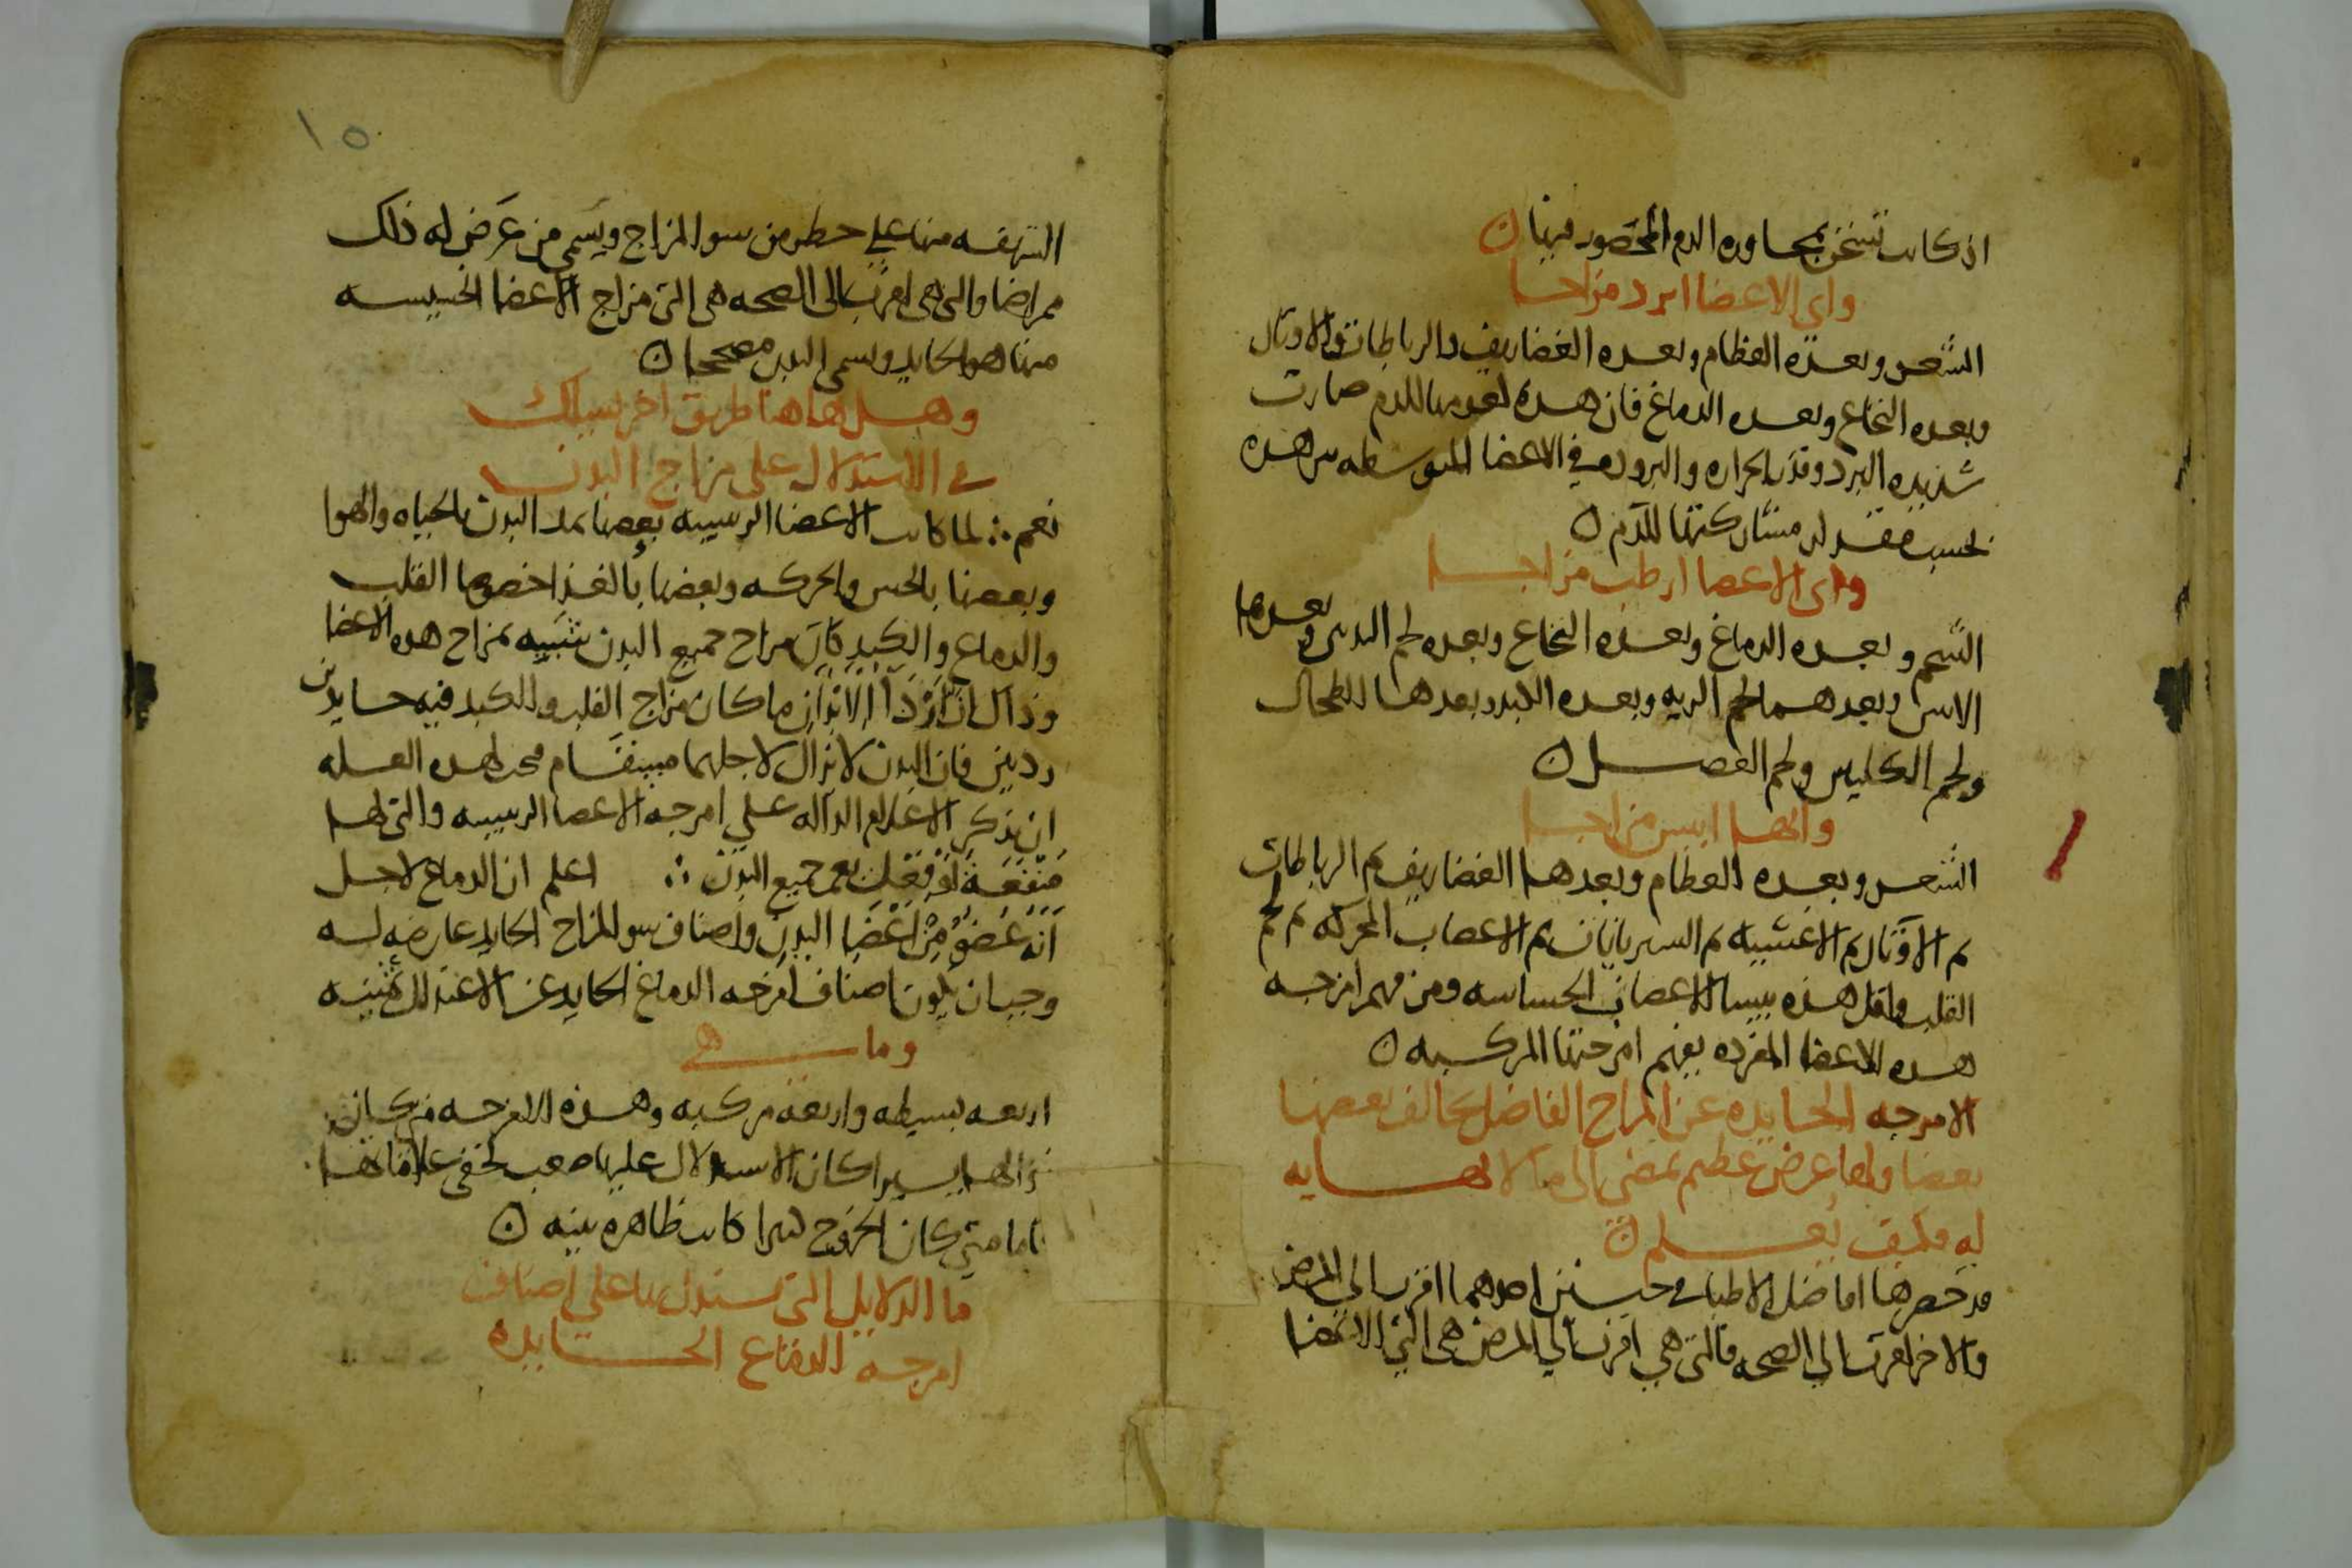 اذ كانت تسخن بمجاوره الدم المحصور فيها ن
واي الاعضا ابرد مزاجا
الشعر وبعده العظام وبعده الغضاريف والرباطات والاوتار
وبعده النخاع وبعده الدماغ فان هذه لعدمها للدم صارت
شديده البرد وقد الحراره والبروده في الاعضا المتوسطه من هذه
بحسب مقدار مشاركتها للدم ن
واي الاعضا ارطب مزاجا
الشحم وبعده الدماغ وبعده النخاع وبعده لحم الثديين وبعدها
الانثيين وبعدهما لحم الريه وبعده الكبد وبعدها الطحال
ولحم الكليتين ولحم العضل ن
وايها ايبس مزاجا
الشعر وبعده العظام وبعدها الغضاريف ثم الرباطات
ثم الاوتار ثم الاغشيه ثم الشريانات ثم الاعصاب المحركه ثم لحم
القلب واقل هذه يبسا الاعصاب الحساسه ومن فهم امزجه
هذه الاعضا المفرده يفهم امزجتها المركبه ن
الامزجه الحايده عن المزاج الفاضل يخالف بعضها
بعضا ولها عرض عظيم يمضي الى ما لا نهايه
له فكيف يعلم ن
قد حصرها افاضل الاطبا في جنسين احدهما اقرب الي المرض
والاخر اقرب الي الصحه فالتي هي اقرب الي المرض هي التي الاعضا
١٥
الشريفه منها علي خطر من سو المزاج ويسمي من عرض له ذلك
ممراضا والتي هي اقرب الى الصحه هي التي مزاج الاعضا الخسيسه
منها هو الحايد ويسمى البدن مصححا ن
وهل هاهنا طريق اخر يسلك
في الاستدلال على مزاج البدن
نعم ∴ لما كانت الاعضا الرييسيه بعضها يمد البدن بالحياه والهوا
وبعضها بالحس والحركه وبعضها بالغذا خصوصا القلب
والدماغ والكبد كان مزاج جميع البدن شبيه بمزاج هذه الاعضا
وذاك ان اردا الابدان ما كان مزاج القلب والكبد فيه حايدين
رديين فان البدن لا يزال لاجلهما مسقام فجب لهذه العله
ان نذكر الاعلام الداله علي امزجه الاعضا الرييسه والتي لها
منفعة او فعل يعم جميع البدن ∴ اعلم ان الدماغ لاجل
انه عضو من اعضا البدن واصناف سو المزاج الحايد عارضه له
وجب ان يكون اصناف امزجه الدماغ الحايد عن الاعتدال ثمنيه
وما هي
اربعه بسيطه واربعه مركبه وهذه الامزجه متي كان
زوالها يسيرا كان الاستدلال عليها صعب لخفى علاماتها
فاما متي كان الخروج كثيرا كانت ظاهره بينه ن
ما الدلايل التي يستدل بها على اصناف
امزجه الدماغ الحايده